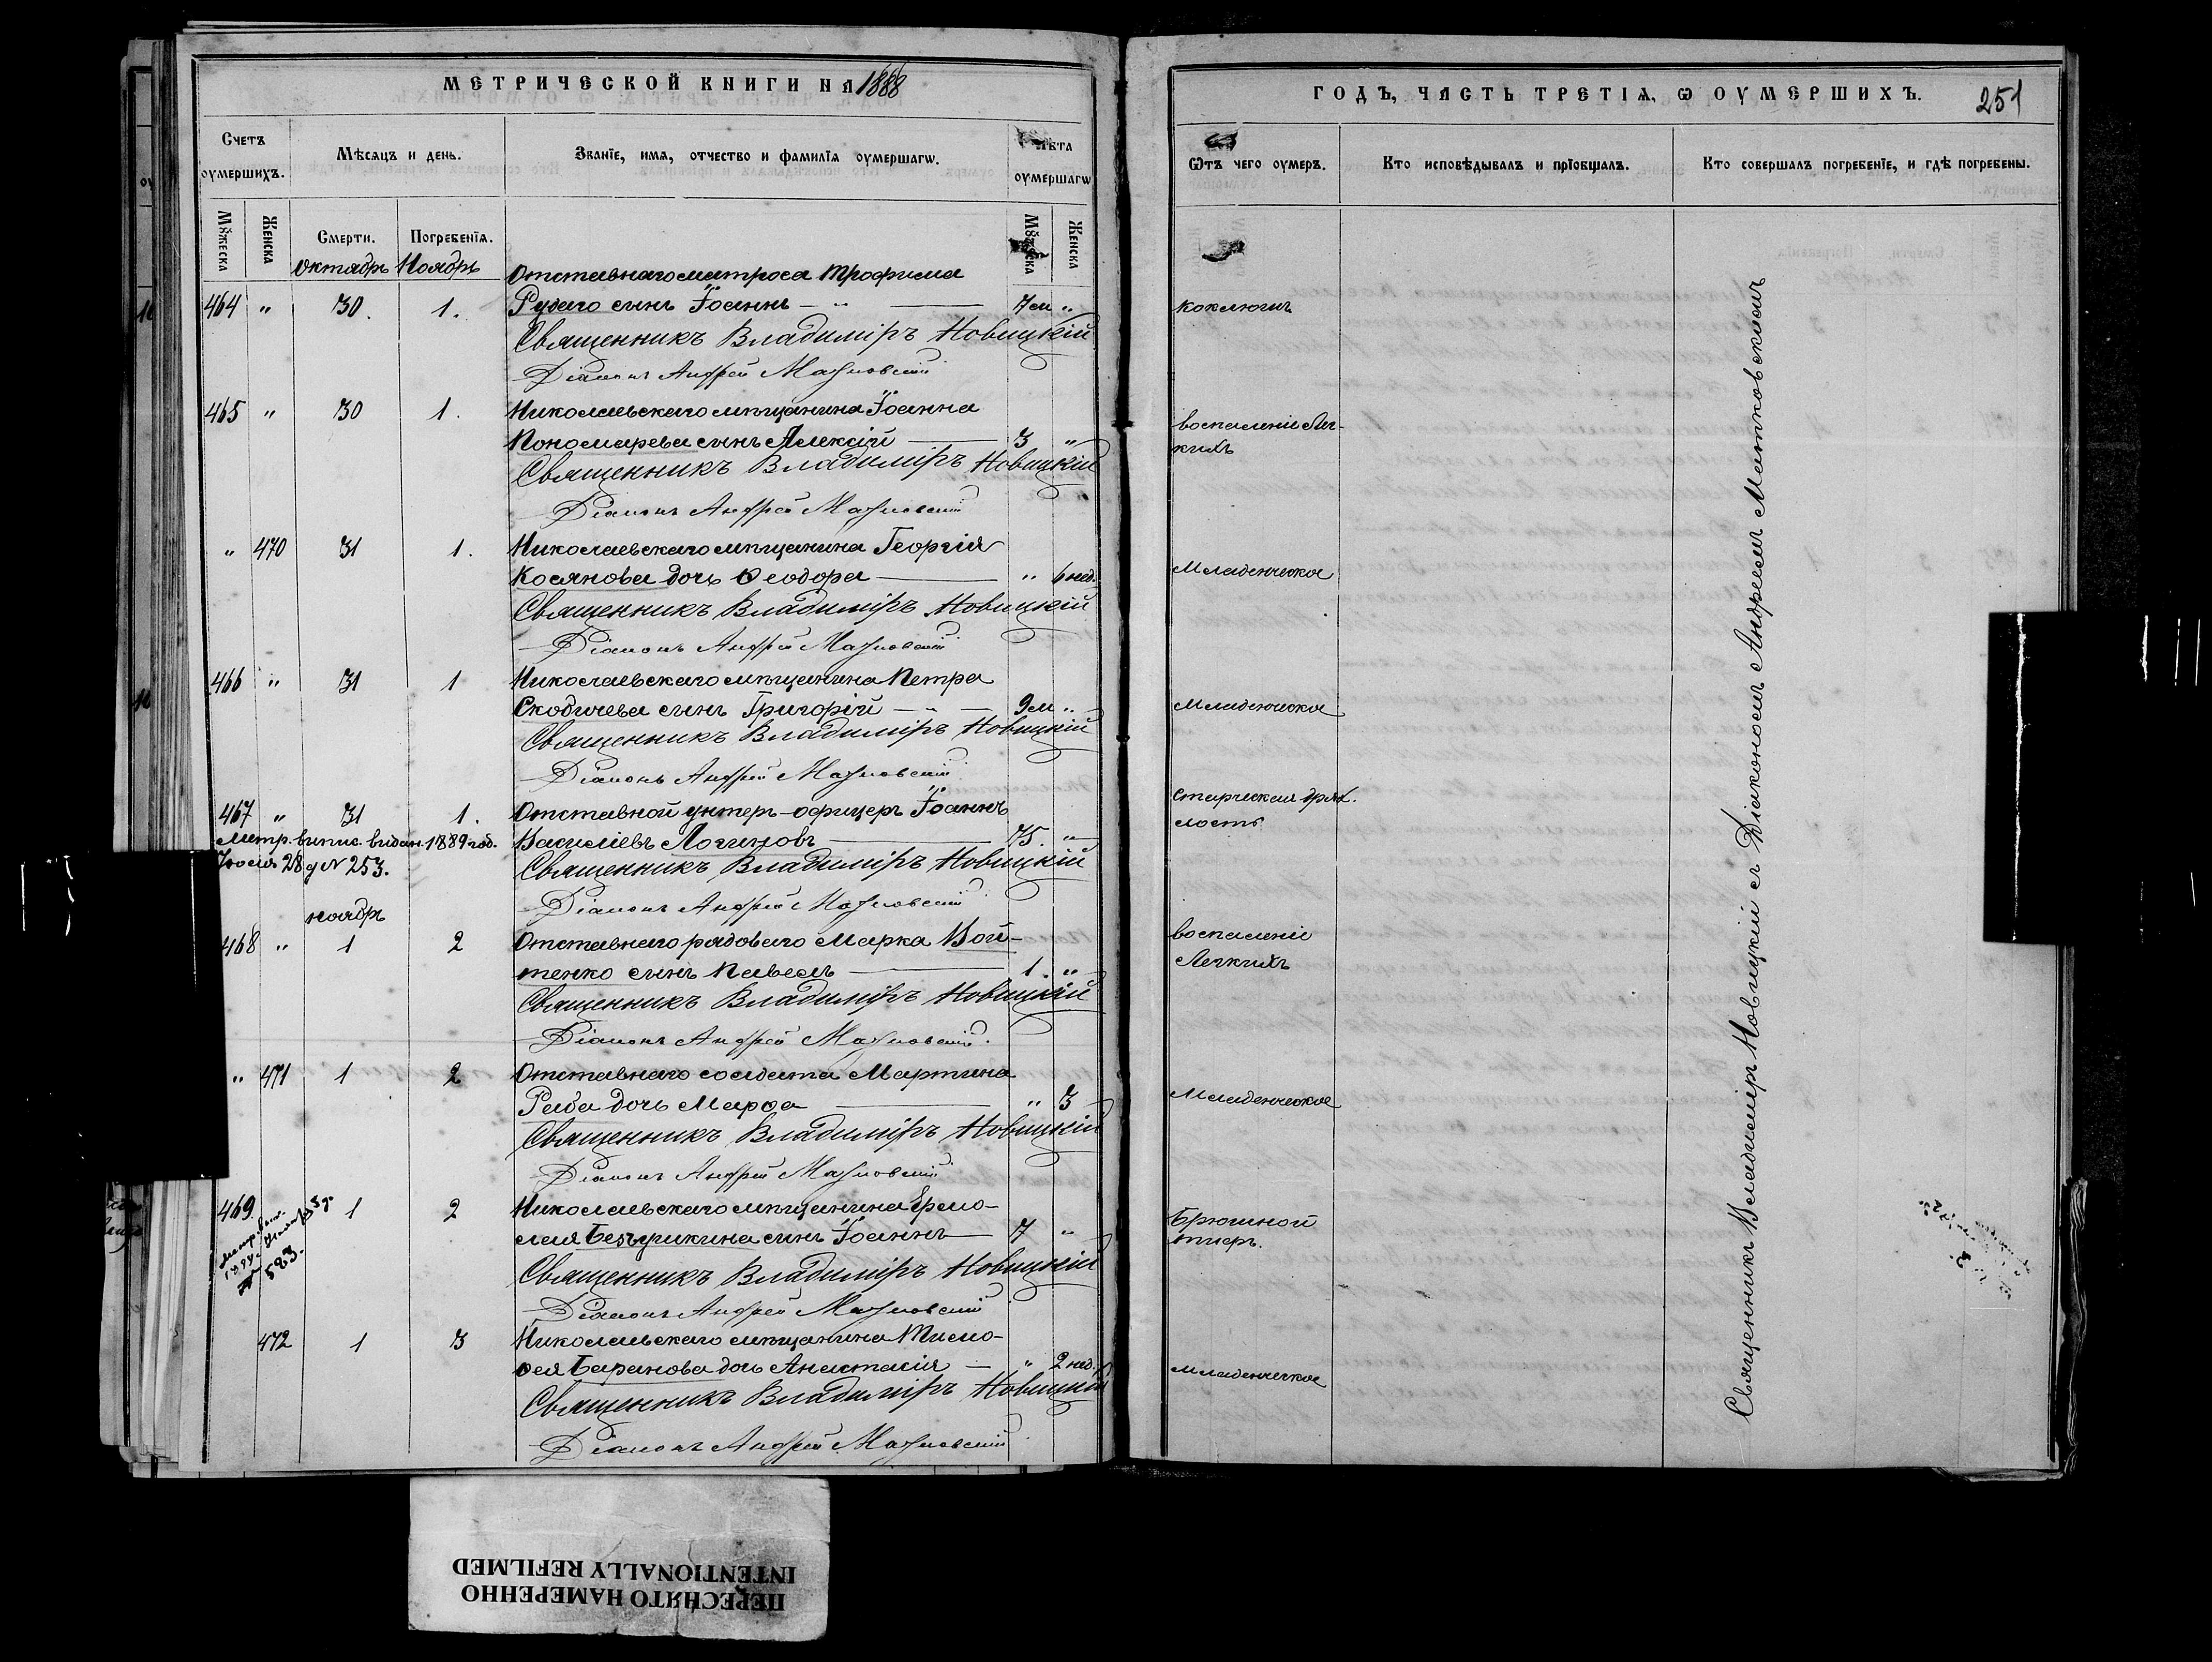 МЕТРИЧЕСКОЙ КНИГИ НА 1888
Счетъ оумершихъ.
Мѣсяцъ и день.
Званїе, имя, отчество и фамилїя оумершагѡ.
Лѣта оумершагѡ
Мꙋжеска
Женска
Смерти.
Погребенїя.
Мꙋжеска
Женска
Октябрь Ноябрь
Отставнаго матроса Трофима
464 " 30. 1. Рудаго сынъ Іоаннъ — " — 7 м "
Священникъ Владиміръ Новицкій
Діаконъ Андрей Матковскій
465 " 30 1. Николаевскаго мѣщанина Іоанна
Пономарева сынъ Алексій — 3 "
Священникъ Владиміръ Новицкій
Діаконъ Андрей Матковскій
" 470 31 1. Николаевскаго мѣщанина Георгія
Косянова дочь Ѳеодора — " 6 нед.
Священникъ Владиміръ Новицкій
Діаконъ Андрей Матковскій
466 " 31 1 Николаевскаго мѣщанина Петра
сынъ Григорій — " — 9 м "
Священникъ Владиміръ Новицкій
Діаконъ Андрей Матковскій
467 " 31 1. Отставной унтеръ-офицеръ Іоаннъ
Метр. выпис. видан. 1889 год. Василіевъ Логиновъ — 75. "
Іюля 28 д № 253.
Священникъ Владиміръ Новицкій
Діаконъ Андрей Матковскій
ноябрь
468 " 1 2 Отставнаго рядоваго Марка Вой-
тенко сынъ Павелъ — 1. "
Священникъ Владиміръ Новицкій
Діаконъ Андрей Матковскій
" 471 1 2 Отставнаго солдата Мартина
Раба дочь Марѳа — " 3
Священникъ Владиміръ Новицкій
Діаконъ Андрей Матковскій
469 1 2 Николаевскаго мѣщанина Ермо-
лая сынъ Іоаннъ — 7 "
583.
Священникъ Владиміръ Новицкій
Діаконъ Андрей Матковскій
472 1 3 Николаевскаго мѣщанина Тимо-
ѳея Баранова дочь Анастасія — " 2 нед.
Священникъ Владиміръ Новицкій
Діаконъ Андрей Матковскій
ГОДЪ, ЧАСТЬ ТРЕТІѦ, Ѡ ОУМЕРШИХЪ.
251
Ѿтъ чего оумеръ.
Кто исповѣдывалъ и прїобщалъ.
Кто совершалъ погребенїе, и гдѣ погребены.
коклюшъ
воспаленіе Лег-
кихъ
Младенческое
Младенческое
старческая дрях.
лость
воспаленіе
Легкихъ
Младенческое
Брюшной
тифъ.
младенческое
Священникъ Владиміръ Новицкій съ Діакономъ Андреемъ Матковскимъ
ПЕРЕСНЯТО НАМЕРЕННО
INTENTIONALLY REFILMED